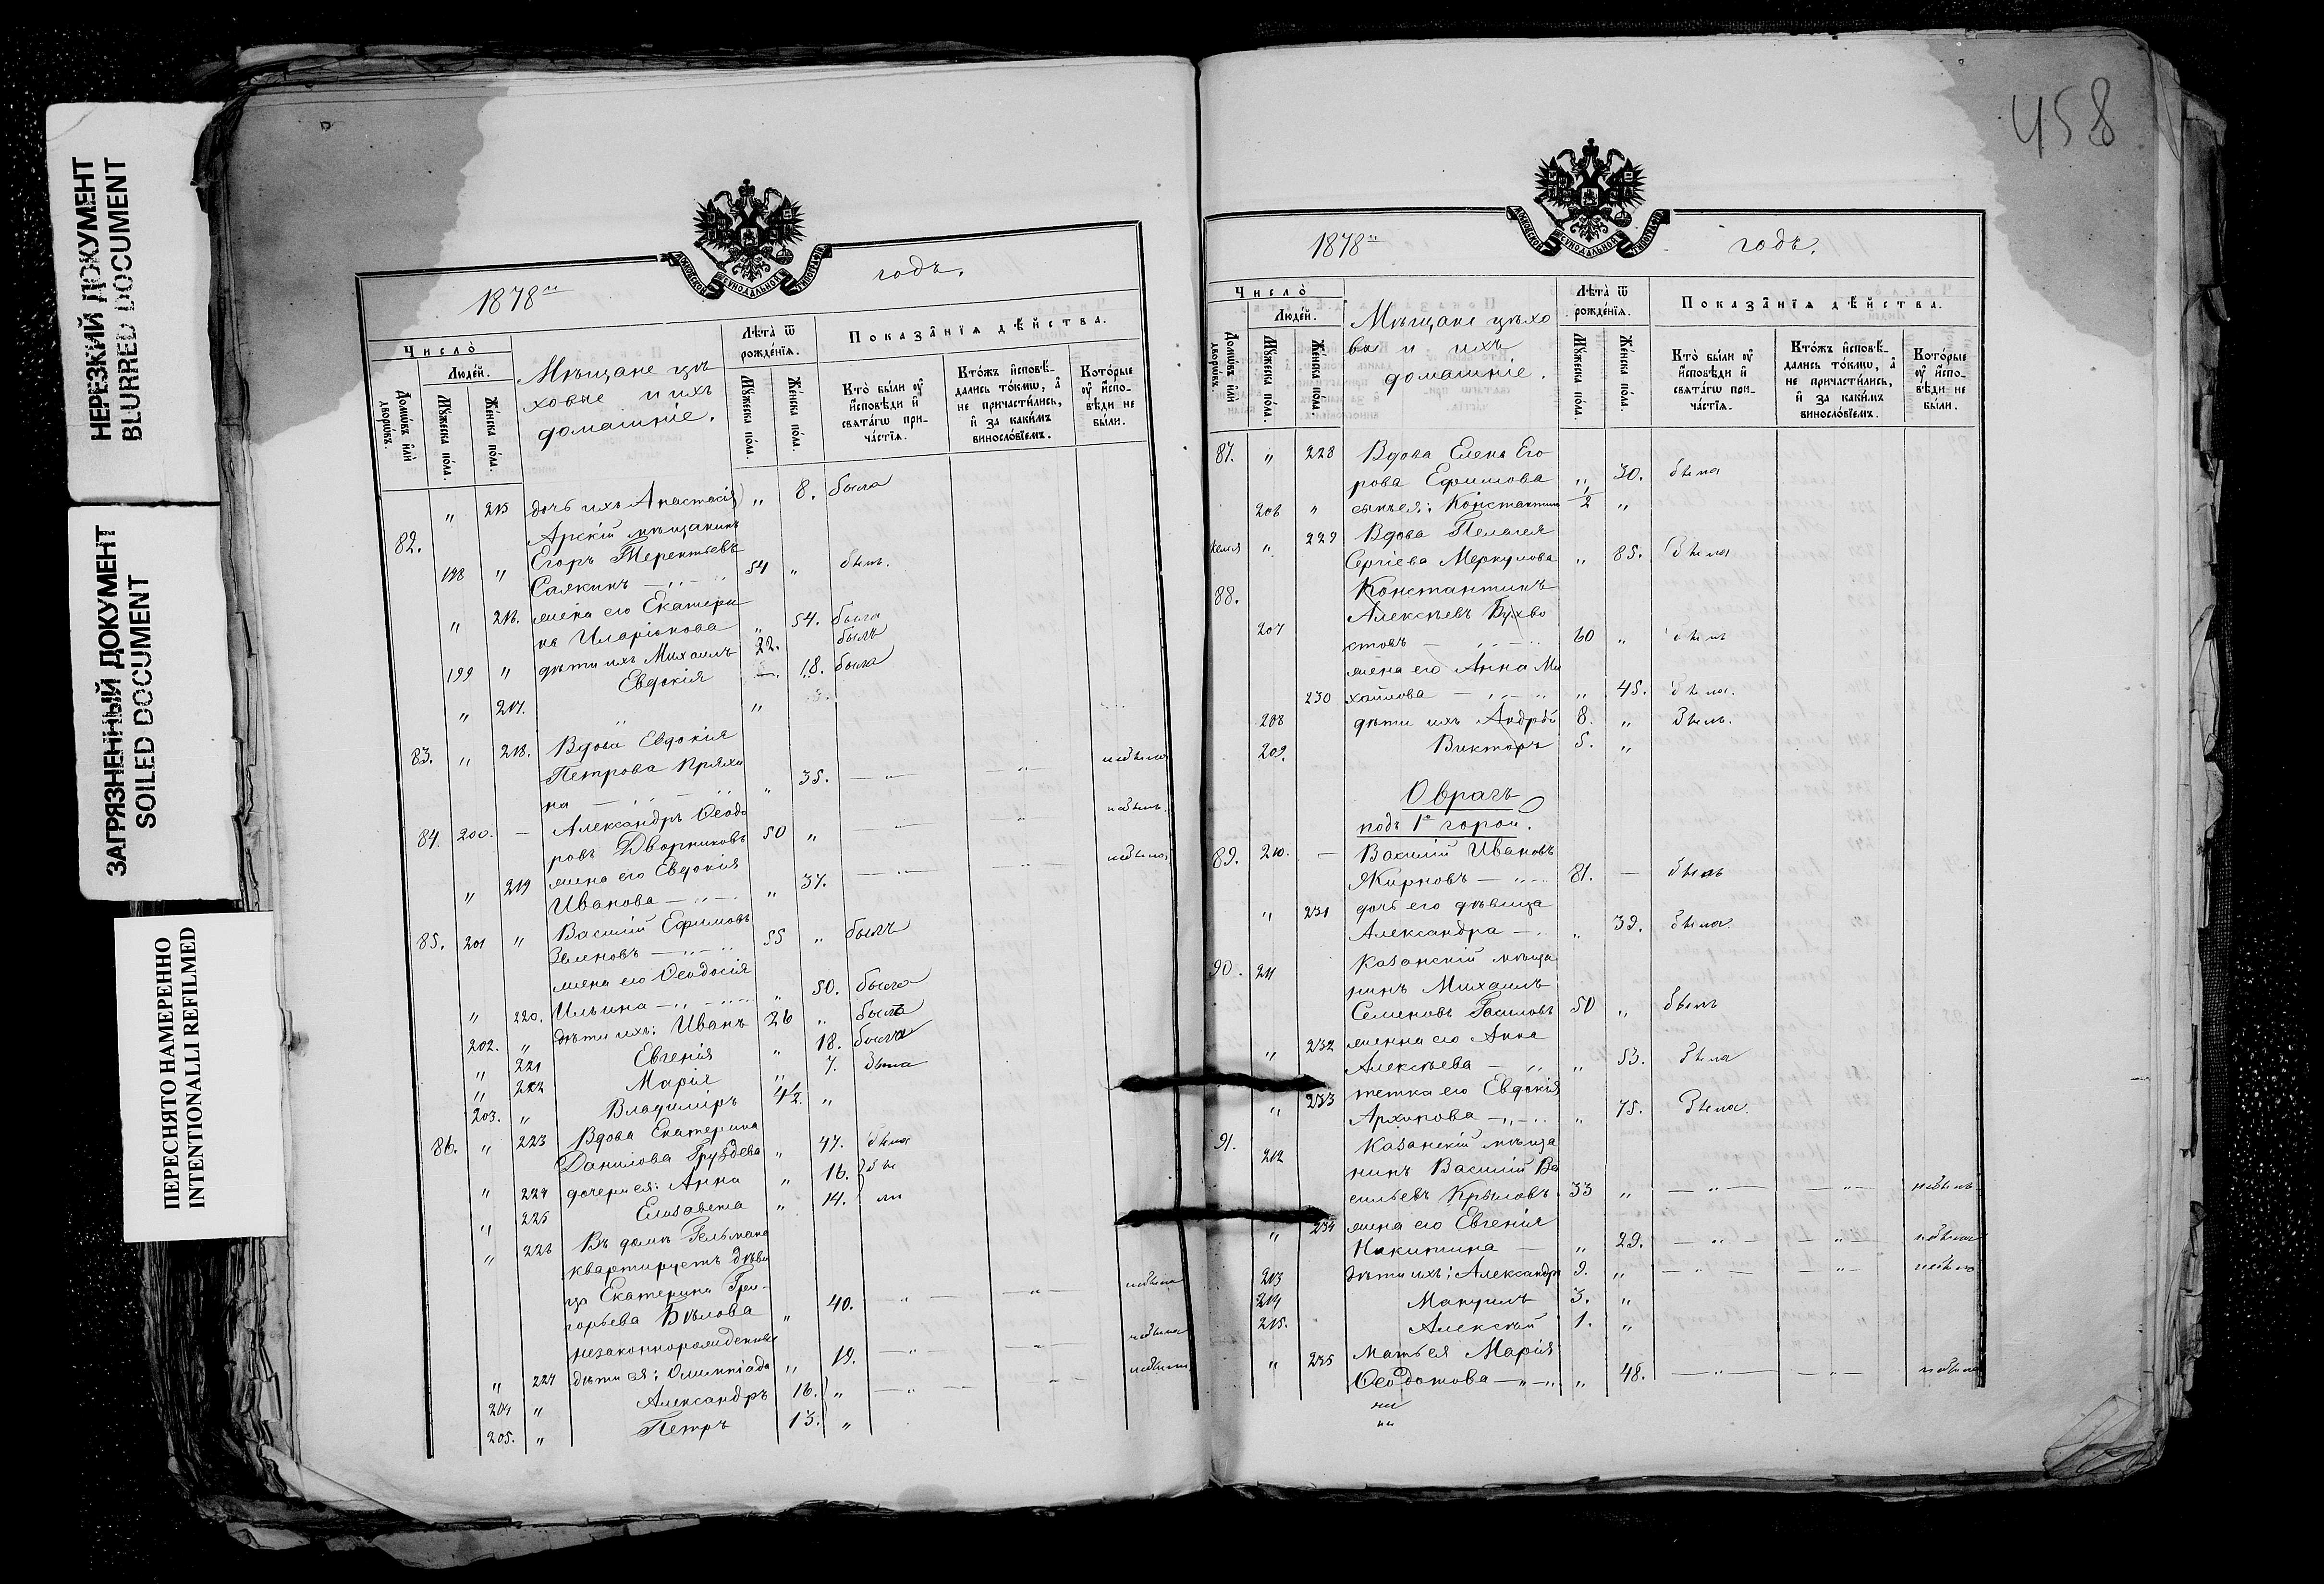 НЕРЕЗКИЙ ДОКУМЕНТ
BLURRED DOCUMENT
ЗАГРЯЗНЕННЫЙ ДОКУМЕНТ
SOILED DOCUMENT
ПЕРЕСНЯТО НАМЕРЕННО
INTENTIONALLI REFILMED
1878 годъ.
Число̀
Людей.
Домѡвъ и҆лѝ дворѡвъ.
Мꙋжеска пола.
Женска пола.
Мѣщане цѣ
ховые и ихъ
домашніе.
Лѣта̀ ѿ рожде́нїѧ.
Мꙋжеска пола.
Женска пола.
Показа̑нїѧ дѣ́йства.
Кто̀ бы́ли ᲂу҆ и҆спо́вѣди и҆ свѧта́гѡ при­ча́стїѧ.
Кто́жъ и҆сповѣ́дались то́кмѡ, а҆ не причасти́лись, и҆ за каки́мъ винослѡ́вїемъ.
Кото́рые ᲂу҆ и҆спо́вѣди не бы́ли.
" 215 дочь ихъ Анастасія " 8. была
82. Арскій мѣщанинъ
Егоръ Терентьевъ
198 " Саякинъ 54 " былъ.
жена его Екатери
" 216. на Иларіонова " 54. была
199 " дѣти ихъ Михаилъ 22. былъ
" 217. Евдокія 18. была
83. " 218. Вдова Евдокія
Петрова Пряхи
на " 35. небыла
84. 200. — Александръ Ѳеодо
ровъ Дворниковъ 50 " небылъ.
жена его Евдокія
" 219 Иванова " 37. небыла
85. 201 " Василій Ефимовъ
Зеленовъ 55 " былъ
жена его Ѳеодосія
" 220. Ильина " 50. была
202. " дѣти ихъ: Иванъ 26 " былъ
" 221 Евгенія " 18. была
" 222 Марія " 7. была
203. " Владиміръ 4½. "
86. " 223 Вдова Екатерина
Данилова Груздева " 47. была
" 224 дочери ея: Анна " 16. бы
" 225 Елизавета " 14. ли
" 226 Въ домѣ Гельмана
квартируетъ дѣви
ца Екатерина Гри-
горьева Бѣлова " 40. небыла
незаконнорожденные
" 227 дѣти ея: Олимпіада " 19. небыла
204 " Александръ 16. " небыли
205. " Петръ 13. "
458
1878 годъ.
Число̀
Людей.
Домѡвъ и҆лѝ дворѡвъ.
Мꙋжеска пола.
Женска пола.
Мѣщане цѣхо
вы и ихъ
домашніе.
Лѣта̀ ѿ рожде́нїѧ.
Мꙋжеска пола.
Женска пола.
Показа̑нїѧ дѣ́йства.
Кто̀ бы́ли ᲂу҆ и҆спо́вѣди и҆ свѧта́гѡ при­ча́стїѧ.
Кто́жъ и҆сповѣ́дались то́кмѡ, а҆ не причасти́лись, и҆ за каки́мъ винослѡ́вїемъ.
Кото́рые ᲂу҆ и҆спо́вѣди не бы́ли.
87. " 228 Вдова Елена Его
рова Ефимова " 30. была
206 " сынъ ея: Константинъ ½ "
" 229 Вдова Пелагея
Сергіева Меркулова " 85. была
88. Константинъ
Алексѣевъ Бухво
207 стовъ 60 " былъ
жена его Анна Ми
230 хайлова " 45. была.
208 дѣти ихъ Андрей 8. " былъ.
209. Викторъ 5. "
Оврагъ
подъ 1й горой.
89. 210. — Василій Ивановъ
Жирновъ 81. — былъ
" 231 дочь его дѣвица
Александра " 39. была.
90. 211 Казанскій мѣща
нинъ Михаилъ
Семеновъ 50 " былъ
" 232 женна его Анна
Алексѣева " 53. была
" 233 тетка его Евдокія
Архипова " 75. была.
91. 212 Казанскій мѣща
нинъ Василій Ва
сильевъ Крыловъ 33 " небылъ
" 234 жена его Евгенія
Никитина " 29. небыла
213 дѣти ихъ: Александръ 9. " небылъ
214 Мануилъ 3. "
215. Алексѣй 1. "
" 235 Мать ея Марія
Ѳеодотова " 48. небыла